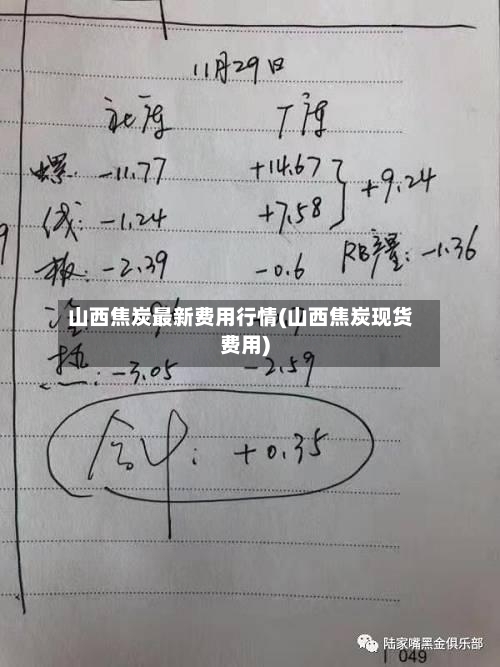 11月29日
社库 厂库
螺: -11.77 +14.67 } +9.24
线: -1.24 +7.58
板: -2.39 -0.6 RB产量: -1.36
山西焦炭最新费用行情(山西焦炭现货
费用)
热: -3.05 -2.59
合计: +0.35
陆家嘴黑金俱乐部
049